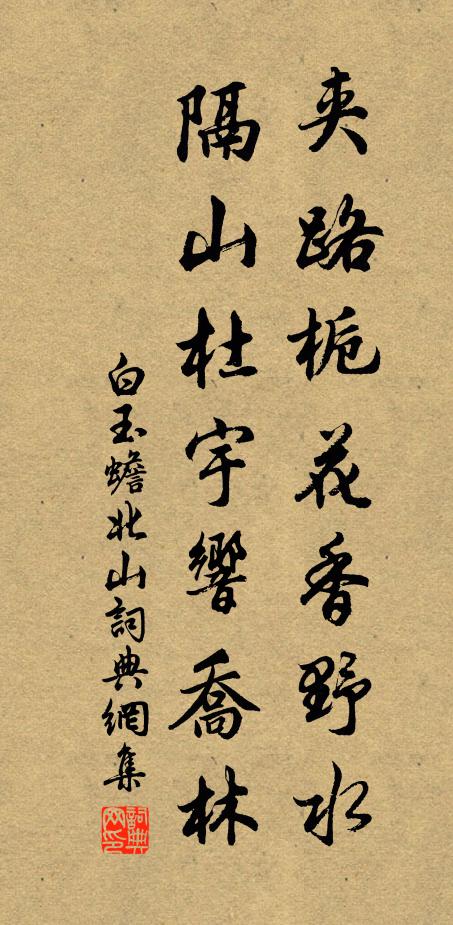 夾路梔花香野水
隔山杜宇響喬林
白玉蟾北山詞典網集
詞典網印